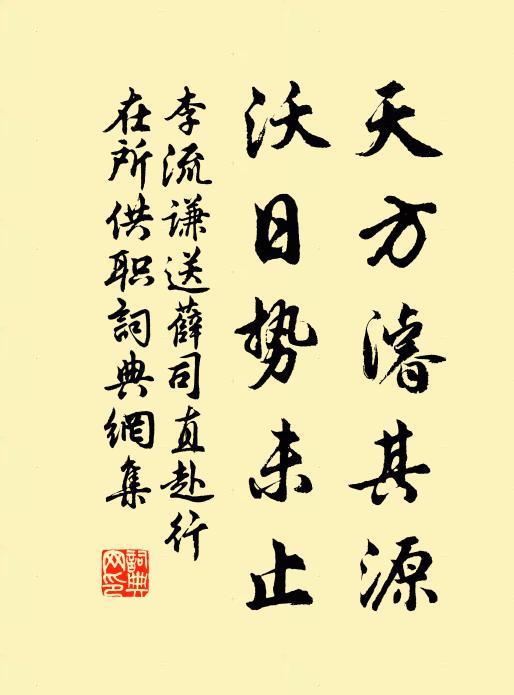 天方濬其源
沃日势未止
李流謙送薛司直赴行
在所供职詞典網集
詞典網印